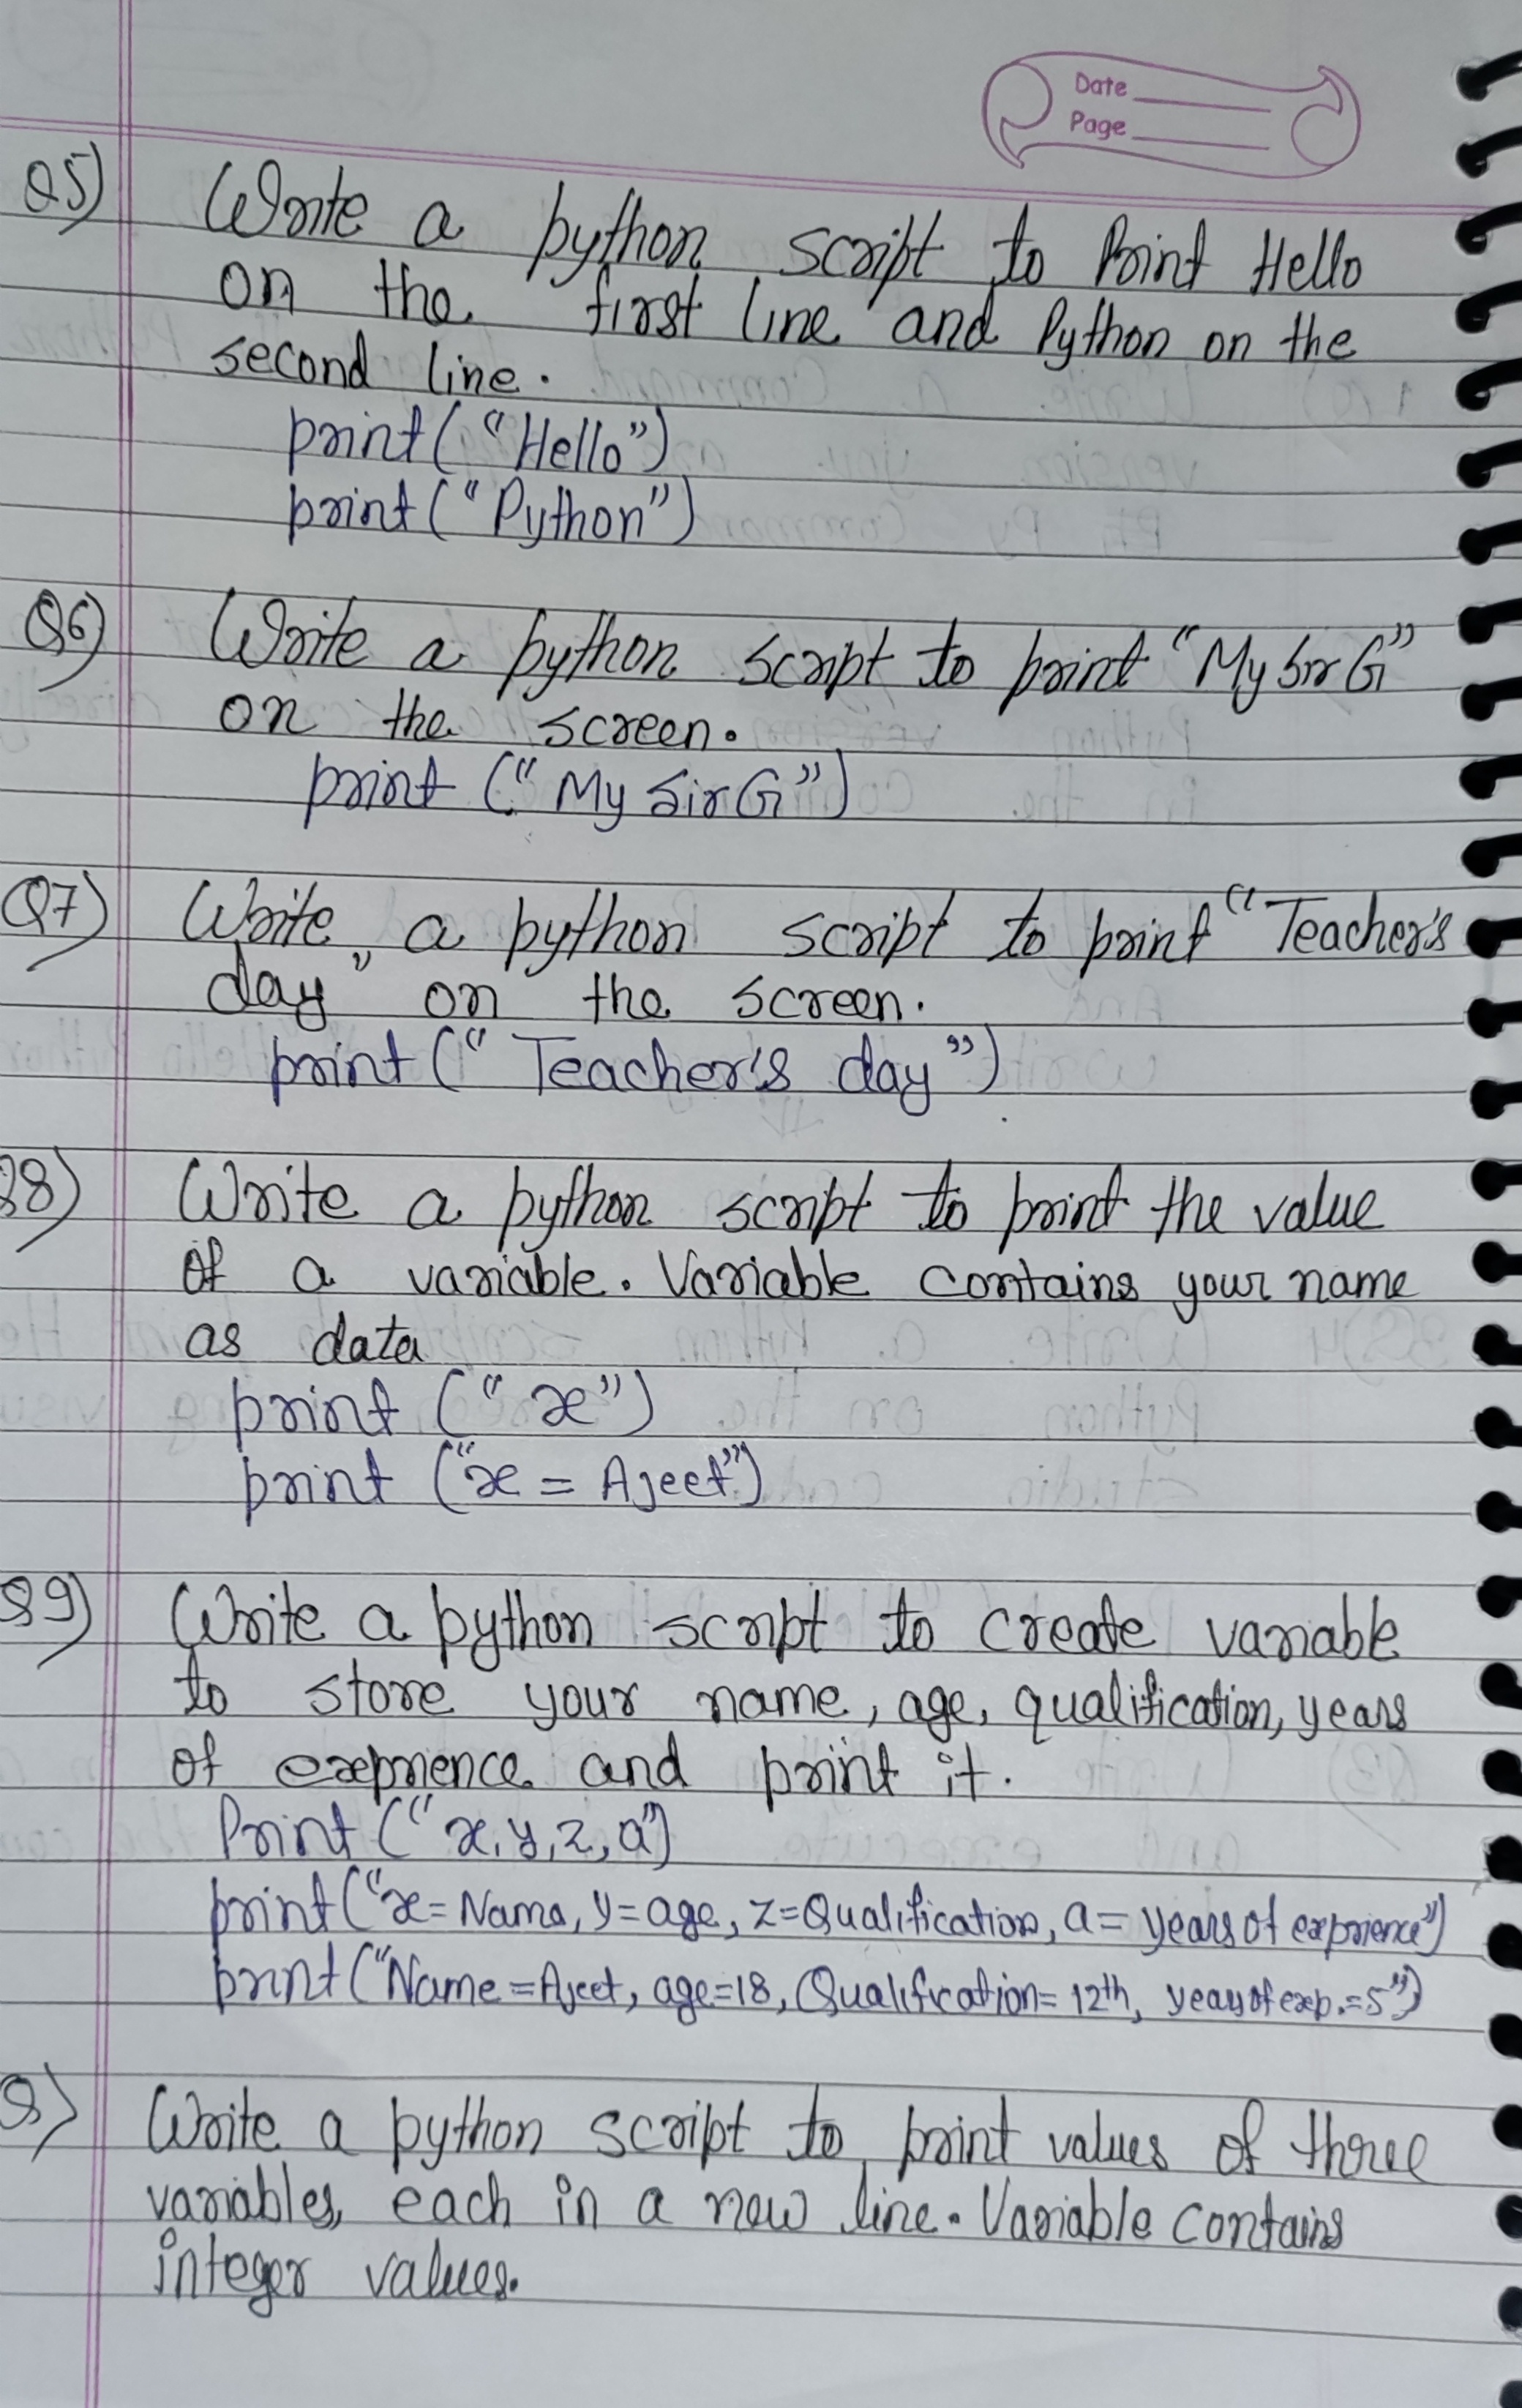 Date
Page
Q5) Write a python script to Print Hello
on the first line and Python on the
second line.
print("Hello")
print("Python")
Q6) Write a python script to print "My Sir G"
on the screen.
print ("My Sir G")
Q7) Write a python script to print "Teacher's
day" on the screen.
print("Teacher's day")
Q8) Write a python script to print the value
of a variable. Variable contains your name
as data
print ("x")
print ("x = Ajeet")
Q9) Write a python script to create variable
to store your name, age, qualification, years
of exeprience and print it.
Print ("x, y, z, a")
print("x=Name, y=age, z=Qualification, a= years of exprience")
print("Name=Ajeet, age=18, Qualification= 12th, years of exp.=5")
Q) Write a python script to print values of three
variables, each in a new line. Variable contains
integer values.